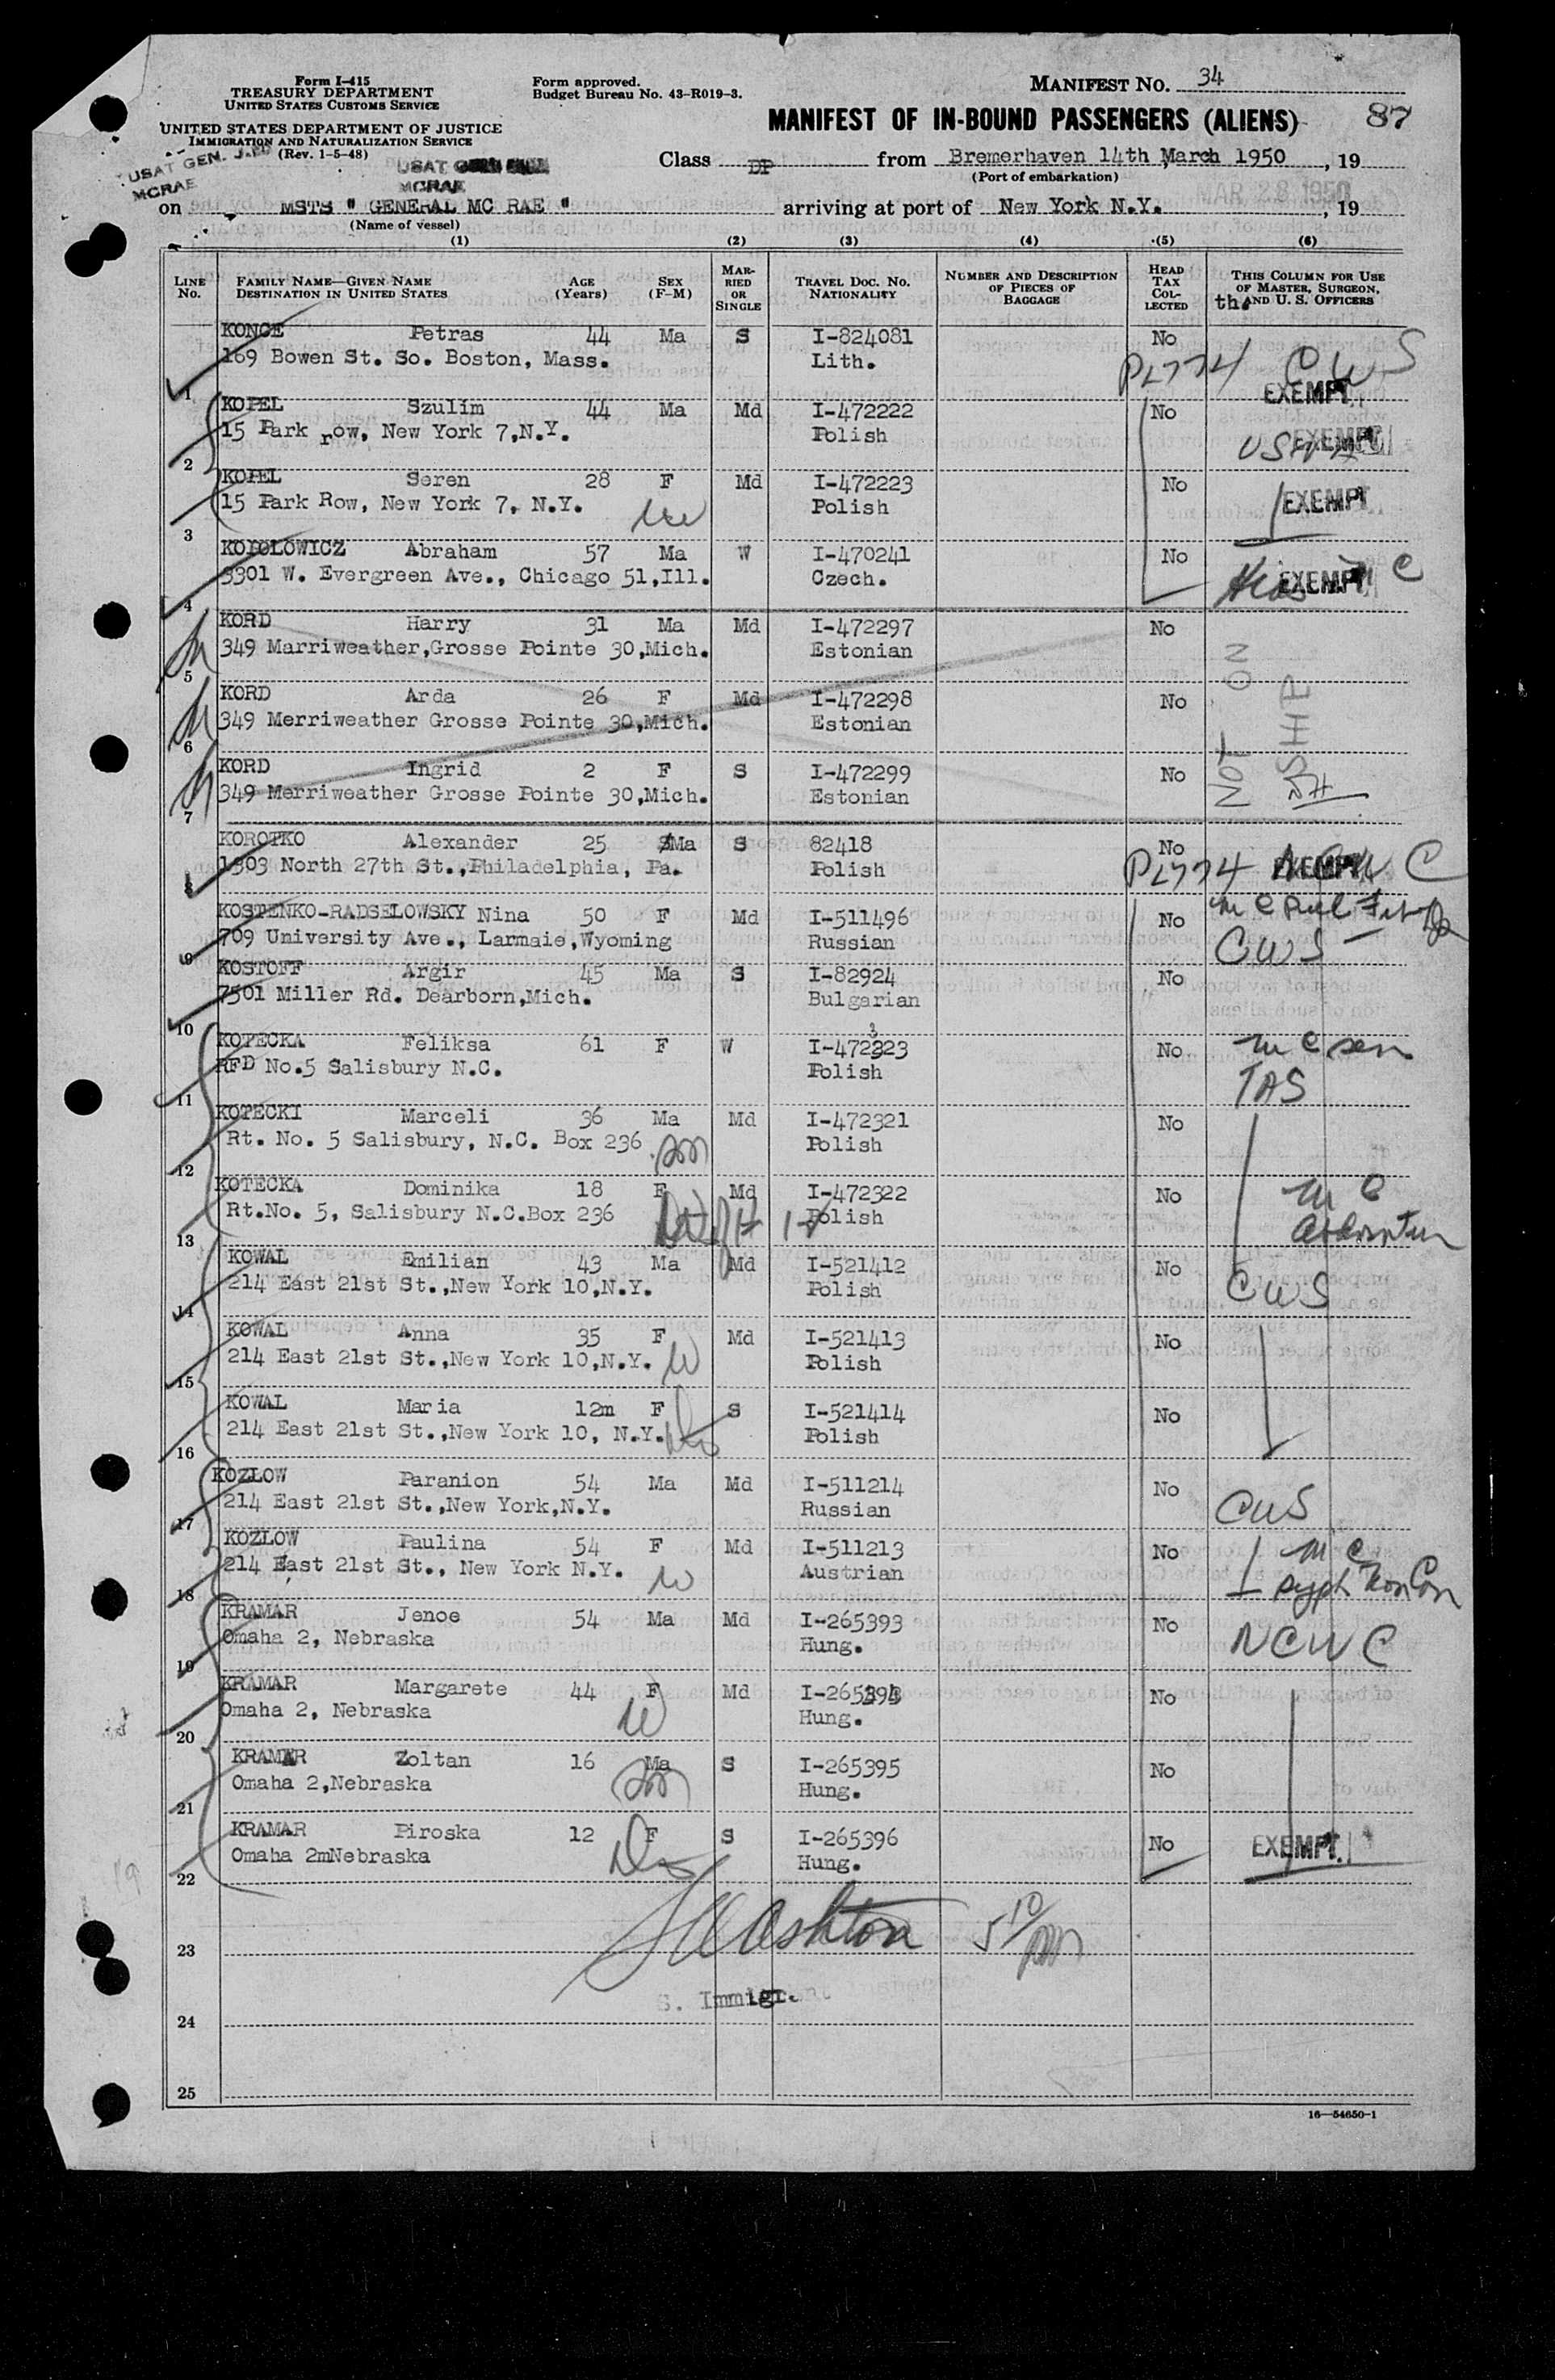 Form I-415
TREASURY DEPARTMENT
UNITED STATES CUSTOMS SERVICE
UNITED STATES DEPARTMENT OF JUSTICE
IMMIGRATION AND NATURALIZATION SERVICE
(Rev. 1-5-48)
Form approved.
Budget Bureau No. 43-R019-3.
MANIFEST No. 34
MANIFEST OF IN-BOUND PASSENGERS (ALIENS) 87
USAT GEN. J.ED
MCRAE
USAT
MCRAE
Class DP from Bremerhaven 14th March 1950, 19
(Port of embarkation)
MAR 28 1950
on MSTS " GENERAL MC RAE " arriving at port of New York N.Y., 19
(Name of vessel)
(1) (2) (3) (4) (5) (6)
LINE No. FAMILY NAME—GIVEN NAME DESTINATION IN UNITED STATES AGE (Years) SEX (F-M) MARRIED OR SINGLE TRAVEL DOC. No. NATIONALITY NUMBER AND DESCRIPTION OF PIECES OF BAGGAGE HEAD TAX COLLECTED THIS COLUMN FOR USE OF MASTER, SURGEON, AND U. S. OFFICERS
KONCE Petras 44 Ma S I-824081 No
169 Bowen St. So. Boston, Mass. Lith. PL774 CWS
1 EXEMPT.
KOPEL Szulim 44 Ma Md I-472222 No
15 Park row, New York 7,N.Y. Polish EXEMPT
2
KOPEL Seren 28 F Md I-472223 No
15 Park Row, New York 7, N.Y. Polish EXEMPT
3 W
KOPOLOWICZ Abraham 57 Ma W I-470241 No
3301 W. Evergreen Ave., Chicago 51,Ill. Czech. EXEMPT
4
KORD Harry 31 Ma Md I-472297 No
349 Marriweather,Grosse Pointe 30,Mich. Estonian
5
KORD Arda 26 F Md I-472298 No
349 Merriweather Grosse Pointe 30,Mich. Estonian
6
NOT ON SHIP
KORD Ingrid 2 F S I-472299 No
349 Merriweather Grosse Pointe 30,Mich. Estonian
7
KOROTKO Alexander 25 Ma S 82418 No
1903 North 27th St.,Philadelphia, Pa. Polish PL774 NCWC EXEMPT
8
KOSTENKO-RADSELOWSKY Nina 50 F Md I-511496 No
709 University Ave., Larmaie,Wyoming Russian CWS
9
KOSTOFF Argir 45 Ma S I-82924 No
7501 Miller Rd. Dearborn,Mich. Bulgarian
10
KOTECKA Feliksa 61 F W I-472323 No
RFD No.5 Salisbury N.C. Polish
11 TAS
KOTECKI Marceli 36 Ma Md I-472321 No
Rt. No. 5 Salisbury, N.C. Box 236 Polish
12
KOTECKA Dominika 18 F Md I-472322 No
Rt.No. 5, Salisbury N.C.Box 236 Polish
13
KOWAL Emilian 43 Ma Md I-521412 No
214 East 21st St.,New York 10,N.Y. Polish CWS
14
KOWAL Anna 35 F Md I-521413 No
214 East 21st St.,New York 10,N.Y. W Polish
15
KOWAL Maria 12m F S I-521414 No
214 East 21st St.,New York 10, N.Y. Polish
16
KOZLOW Paranion 54 Ma Md I-511214 No
214 East 21st St.,New York,N.Y. Russian CWS
17
KOZLOW Paulina 54 F Md I-511213 No
214 East 21st St., New York N.Y. W Austrian
18
KRAMAR Jenoe 54 Ma Md I-265393 No
Omaha 2, Nebraska Hung. NCWC
19
KRAMAR Margarete 44 F Md I-265394 No
Omaha 2, Nebraska W Hung.
20
KRAMAR Zoltan 16 Ma S I-265395 No
Omaha 2,Nebraska Hung.
21
KRAMAR Piroska 12 F S I-265396 No
Omaha 2mNebraska Hung. EXEMPT.
22
Ashton 5 10/
23
S. Immigr.
24
25
16—54650-1